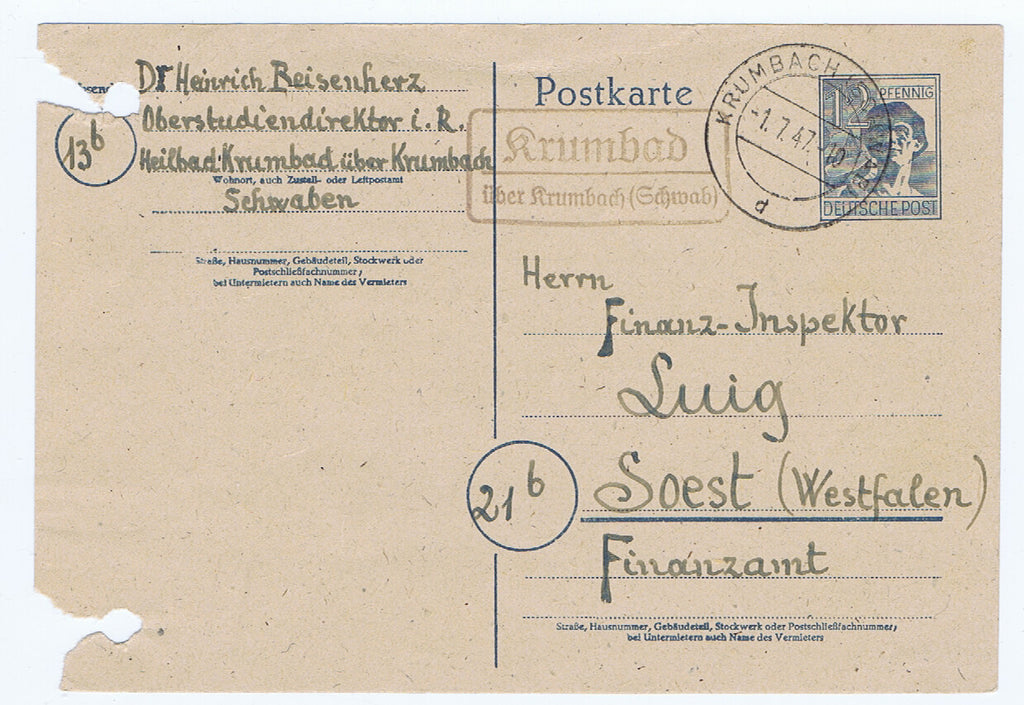 Dr Heinrich Reisenherz
Oberstudiendirektor i. R.
13b
Heilbad Krumbad über Krumbach
Wohnort, auch Zustell- oder Leitpostamt
Schwaben
Straße, Hausnummer, Gebäudeteil, Stockwerk oder
Postschließfachnummer;
bei Untermietern auch Name des Vermieters
Postkarte
Krumbad
über Krumbach (Schwab)
KRUMBACH
-1.7.47
d
12 PFENNIG
DEUTSCHE POST
Herrn
Finanz-Inspektor
Luig
21b
Soest (Westfalen)
Finanzamt
Straße, Hausnummer, Gebäudeteil, Stockwerk oder Postschließfachnummer;
bei Untermietern auch Name des Vermieters